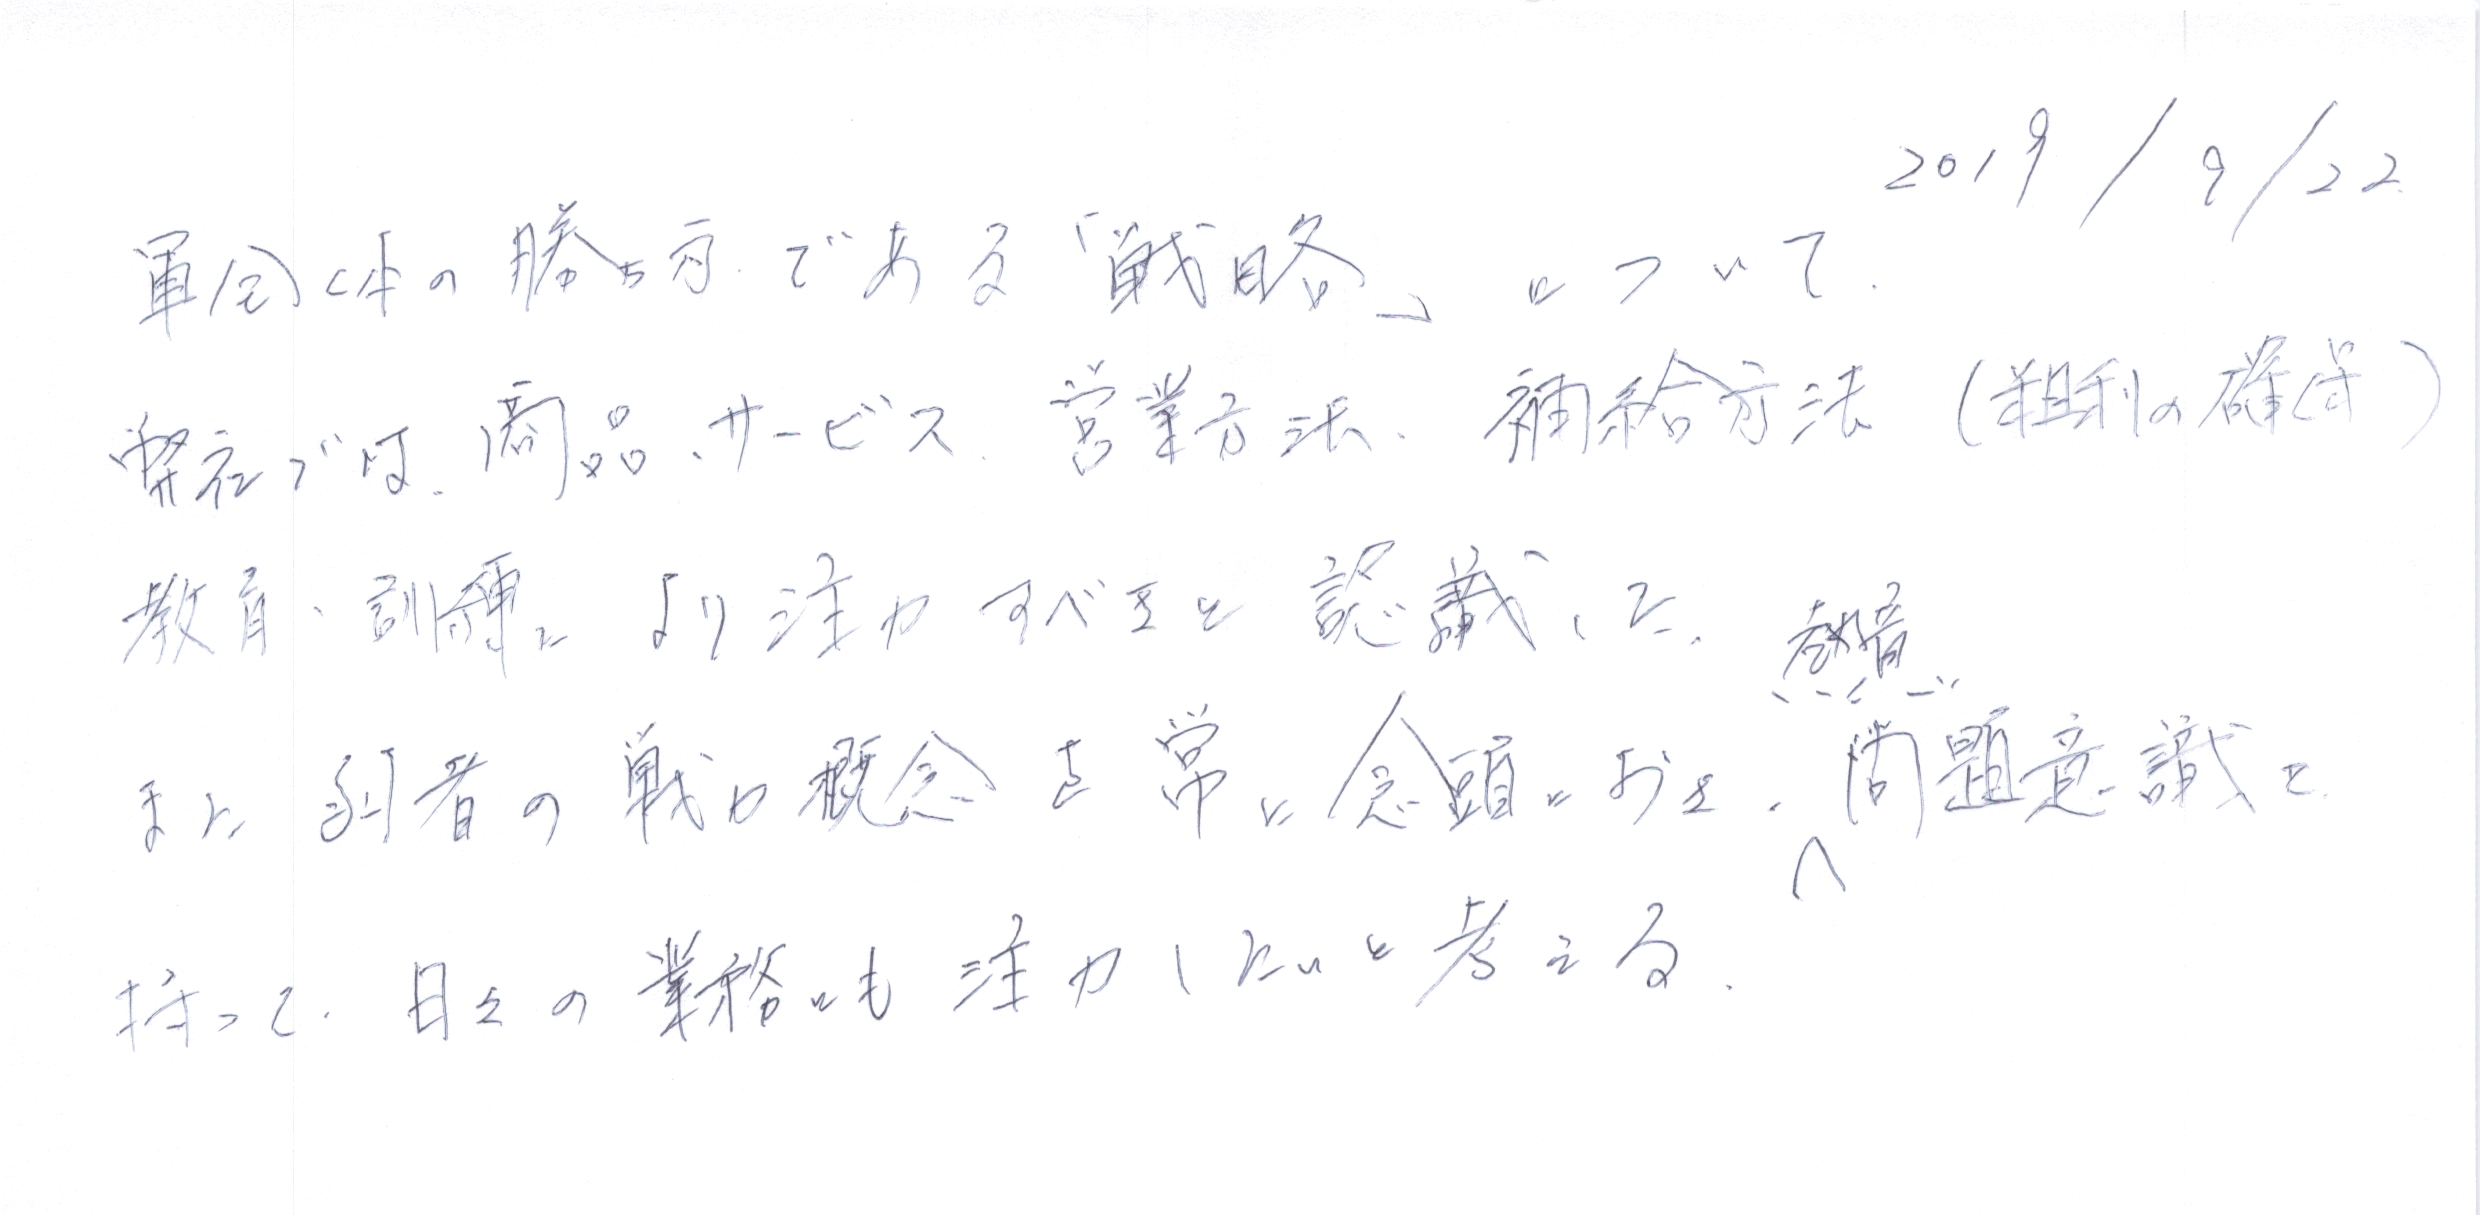 2019/9/22
軍全体の勝ち方である「戦略」について.
弊社では、商品、サービス、営業方法、補給方法(粗利の確保)
教育、訓練により注力すべきと認識した。
熱意
また弱者の戦力概念を常に念頭におき、問題意識を
持って、日々の業務にも注力したいと考える。